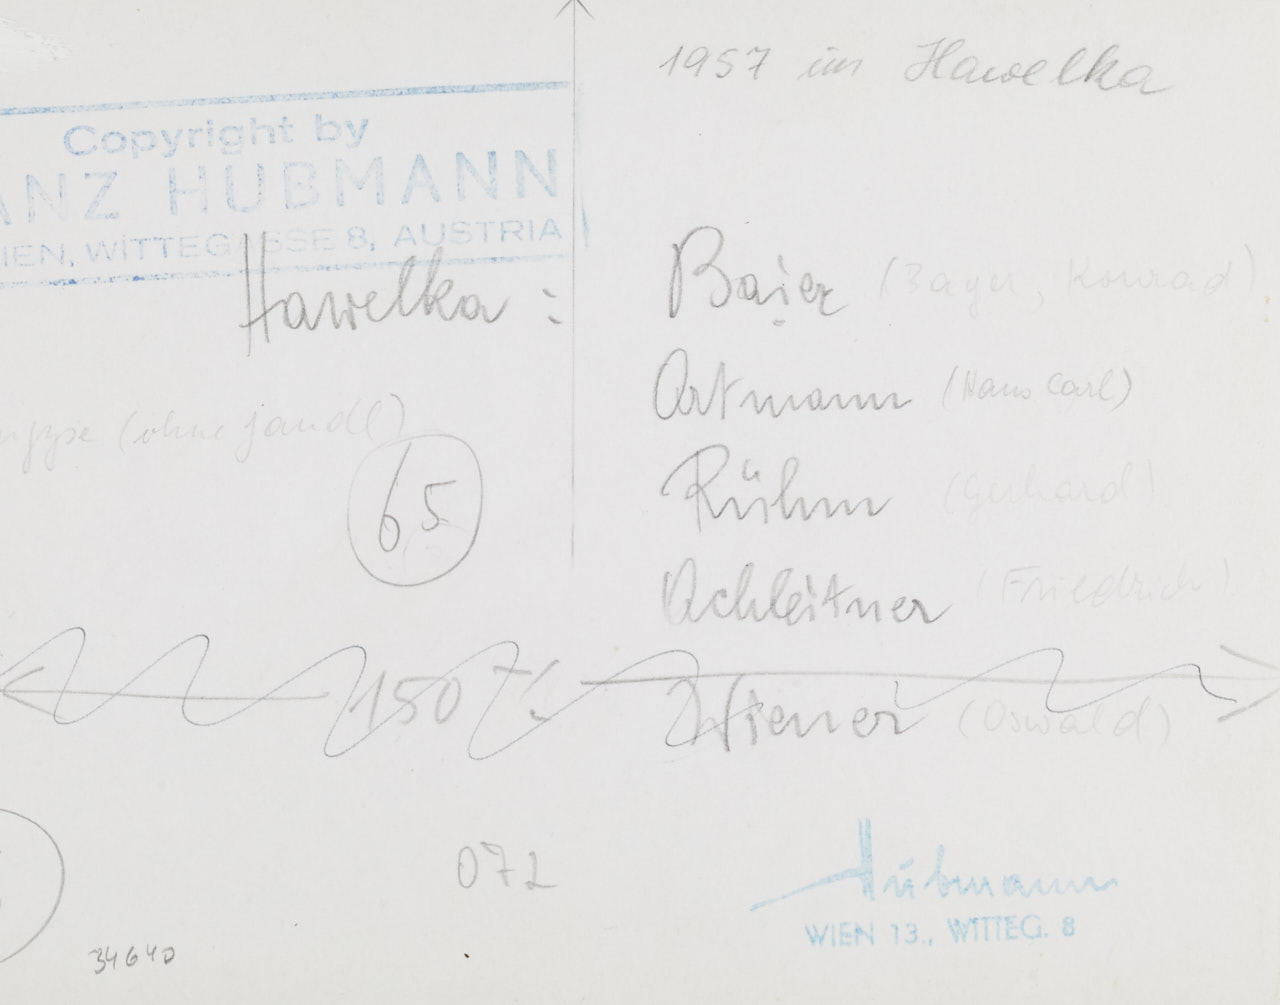 1957 im Hawelka
Copyright by
ANZ HUBMANN
IEN, WITTEGASSE 8, AUSTRIA
Hawelka :
Baier (Bayer, Konrad)
Artmann (Hans Carl)
(ohne Jandl)
65
Rühm (Gerhard)
Achleitner (Friedrich)
150 %
Wiener (Oswald)
072
Hubmann
WIEN 13., WITTEG. 8
34640